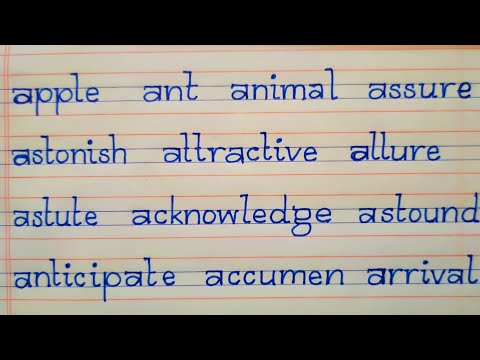 apple ant animal assure
astonish attractive allure
astute acknowledge astound
anticipate accumen arrival